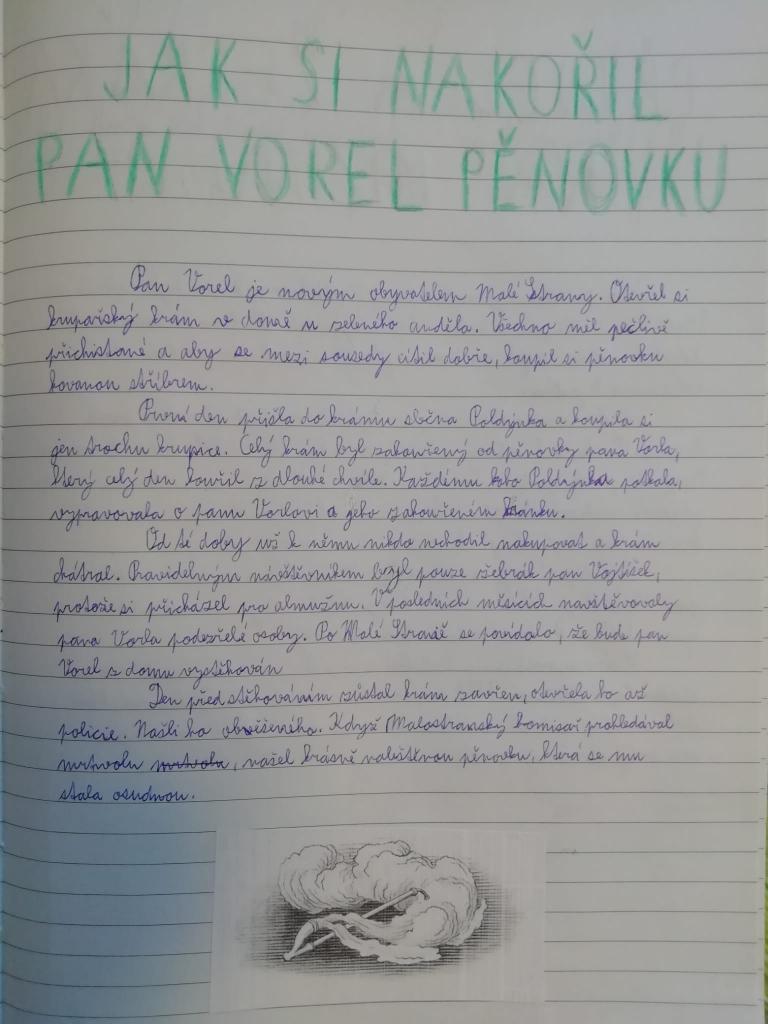 JAK SI NAKOŘIL
PAN VOREL PĚNOVKU
Pan Vorel je novým obyvatelem Malé Strany. Otevřel si
krupařský krám v domě u zeleného anděla. Všechno měl pečlivě
přichistané a aby se mezi sousedy cítil dobře, koupil si pěnovku
kovanou stříbrem.
První den přišla do krámu slečna Poldýnka a koupila si
jen trochu krupice. Celý krám byl zakouřený od pěnovky pana Vorla,
který celý den kouřil z dlouhé chvíle. Každému koho Poldýnka potkala,
vypravovala o panu Vorlovi a jeho zakouřeném krámku.
Od té doby už k němu nikdo nechodil nakupovat a krám
chátral. Pravidelným návštěvníkem byl pouze žebrák pan Vojtíšek,
protože si přicházel pro almužnu. V posledních měsících navštěvovaly
pana Vorla podezřelé osoby. Po Malé Straně se povídalo, že bude pan
Vorel z domu vystěhován
Den před stěhováním zůstal krám zavřen, otevřela ho až
policie. Našli ho oběšeného. Když Malostranský komisař prohledával
mrtvolu mrtvolu, našel krásně naleštěnou pěnovku, která se mu
stala osudnou.